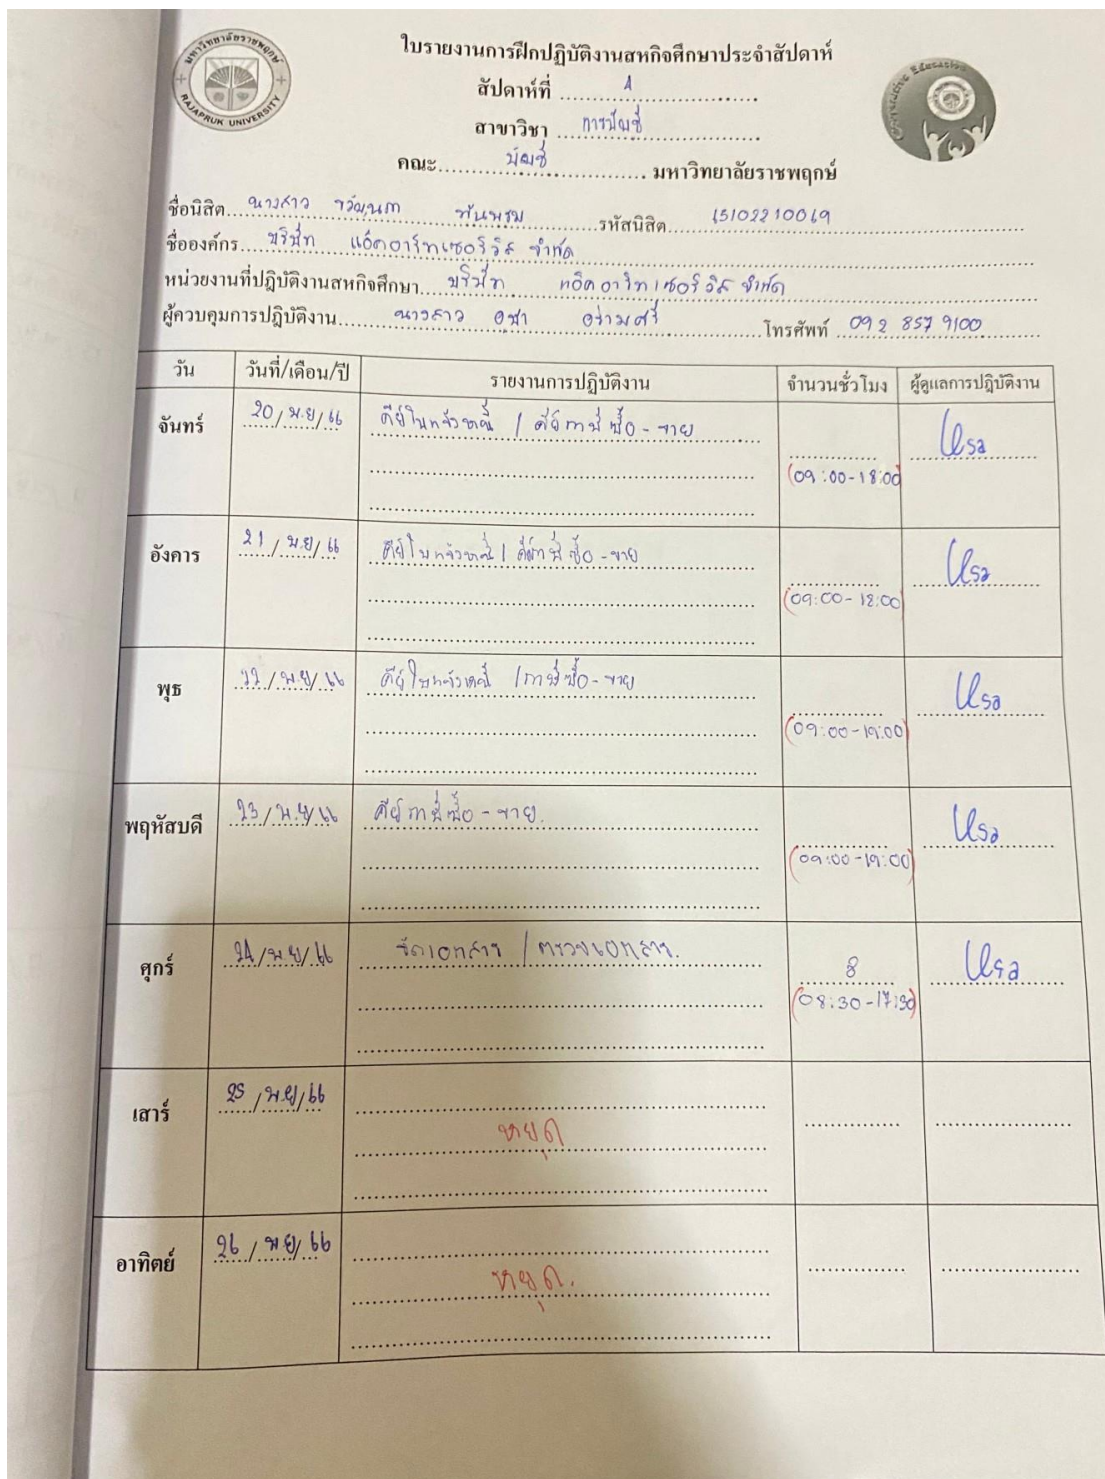 มหาวิทยาลัยราชพฤกษ์
RAJAPRUK UNIVERSITY
ใบรายงานการฝึกปฏิบัติงานสหกิจศึกษาประจำสัปดาห์
สัปดาห์ที่
สาขาวิชา การบัญชี
คณะ บัญชี มหาวิทยาลัยราชพฤกษ์
ชื่อนิสิต นางสาว รหัสนิสิต
ชื่อองค์กร บริษัท แอ๊คอาร์ทเซอร์วิส จำกัด
หน่วยงานที่ปฏิบัติงานสหกิจศึกษา บริษัท แอ๊คอาร์ทเซอร์วิส จำกัด
ผู้ควบคุมการปฏิบัติงาน นางสาว อุษา โทรศัพท์ 092 857 9100
วัน วันที่/เดือน/ปี รายงานการปฏิบัติงาน จำนวนชั่วโมง ผู้ดูแลการปฏิบัติงาน
จันทร์ 20/พ.ย/66 คีย์ใบแจ้งหนี้ / คีย์ภาษีซื้อ-ขาย
(09:00-18:00)
อังคาร 21/พ.ย/66 คีย์ใบแจ้งหนี้ / คีย์ภาษีซื้อ-ขาย
(09:00-18:00)
พุธ 22/พ.ย/66 คีย์ใบแจ้งหนี้ / ภาษีซื้อ-ขาย
(09:00-19:00)
พฤหัสบดี 23/พ.ย/66 คีย์ภาษีซื้อ-ขาย.
(09:00-19:00)
ศุกร์ 24/พ.ย/66 จัดเอกสาร / ตรวจเอกสาร. 8
(08:30-17:30)
เสาร์ 25/พ.ย/66
หยุด
อาทิตย์ 26/พ.ย/66
หยุด.